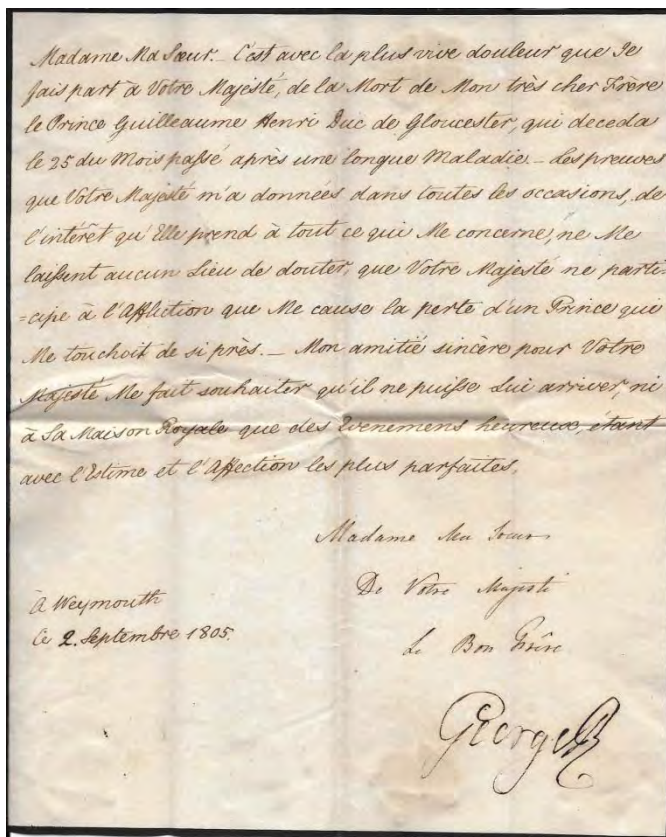 Madame Ma Sœur._ C'est avec la plus vive douleur que Je
fais part à Votre Majesté, de la Mort de Mon très cher Frère
le Prince Guilleaume Henri Duc de Gloucester, qui deceda
le 25 du Mois passé après une longue Maladie._ Les preuves
que Votre Majesté m'a données dans toutes les occasions, de
l'intérêt qu'Elle prend à tout ce qui Me concerne, ne Me
laissent aucun Lieu de douter, que Votre Majesté ne parti-
=cipe à l'Affliction que Me cause la perte d'un Prince qui
Me touchoit de si près._ Mon amitié sincère pour Votre
Majesté Me fait souhaiter qu'il ne puisse Lui arriver, ni
à Sa Maison Royale que des Evenemens heureux, étant
avec l'Estime et l'Affection les plus parfaites,
Madame Ma Sœur
De Votre Majesté
Le Bon Frère
À Weymouth
Ce 2. Septembre 1805.
George R